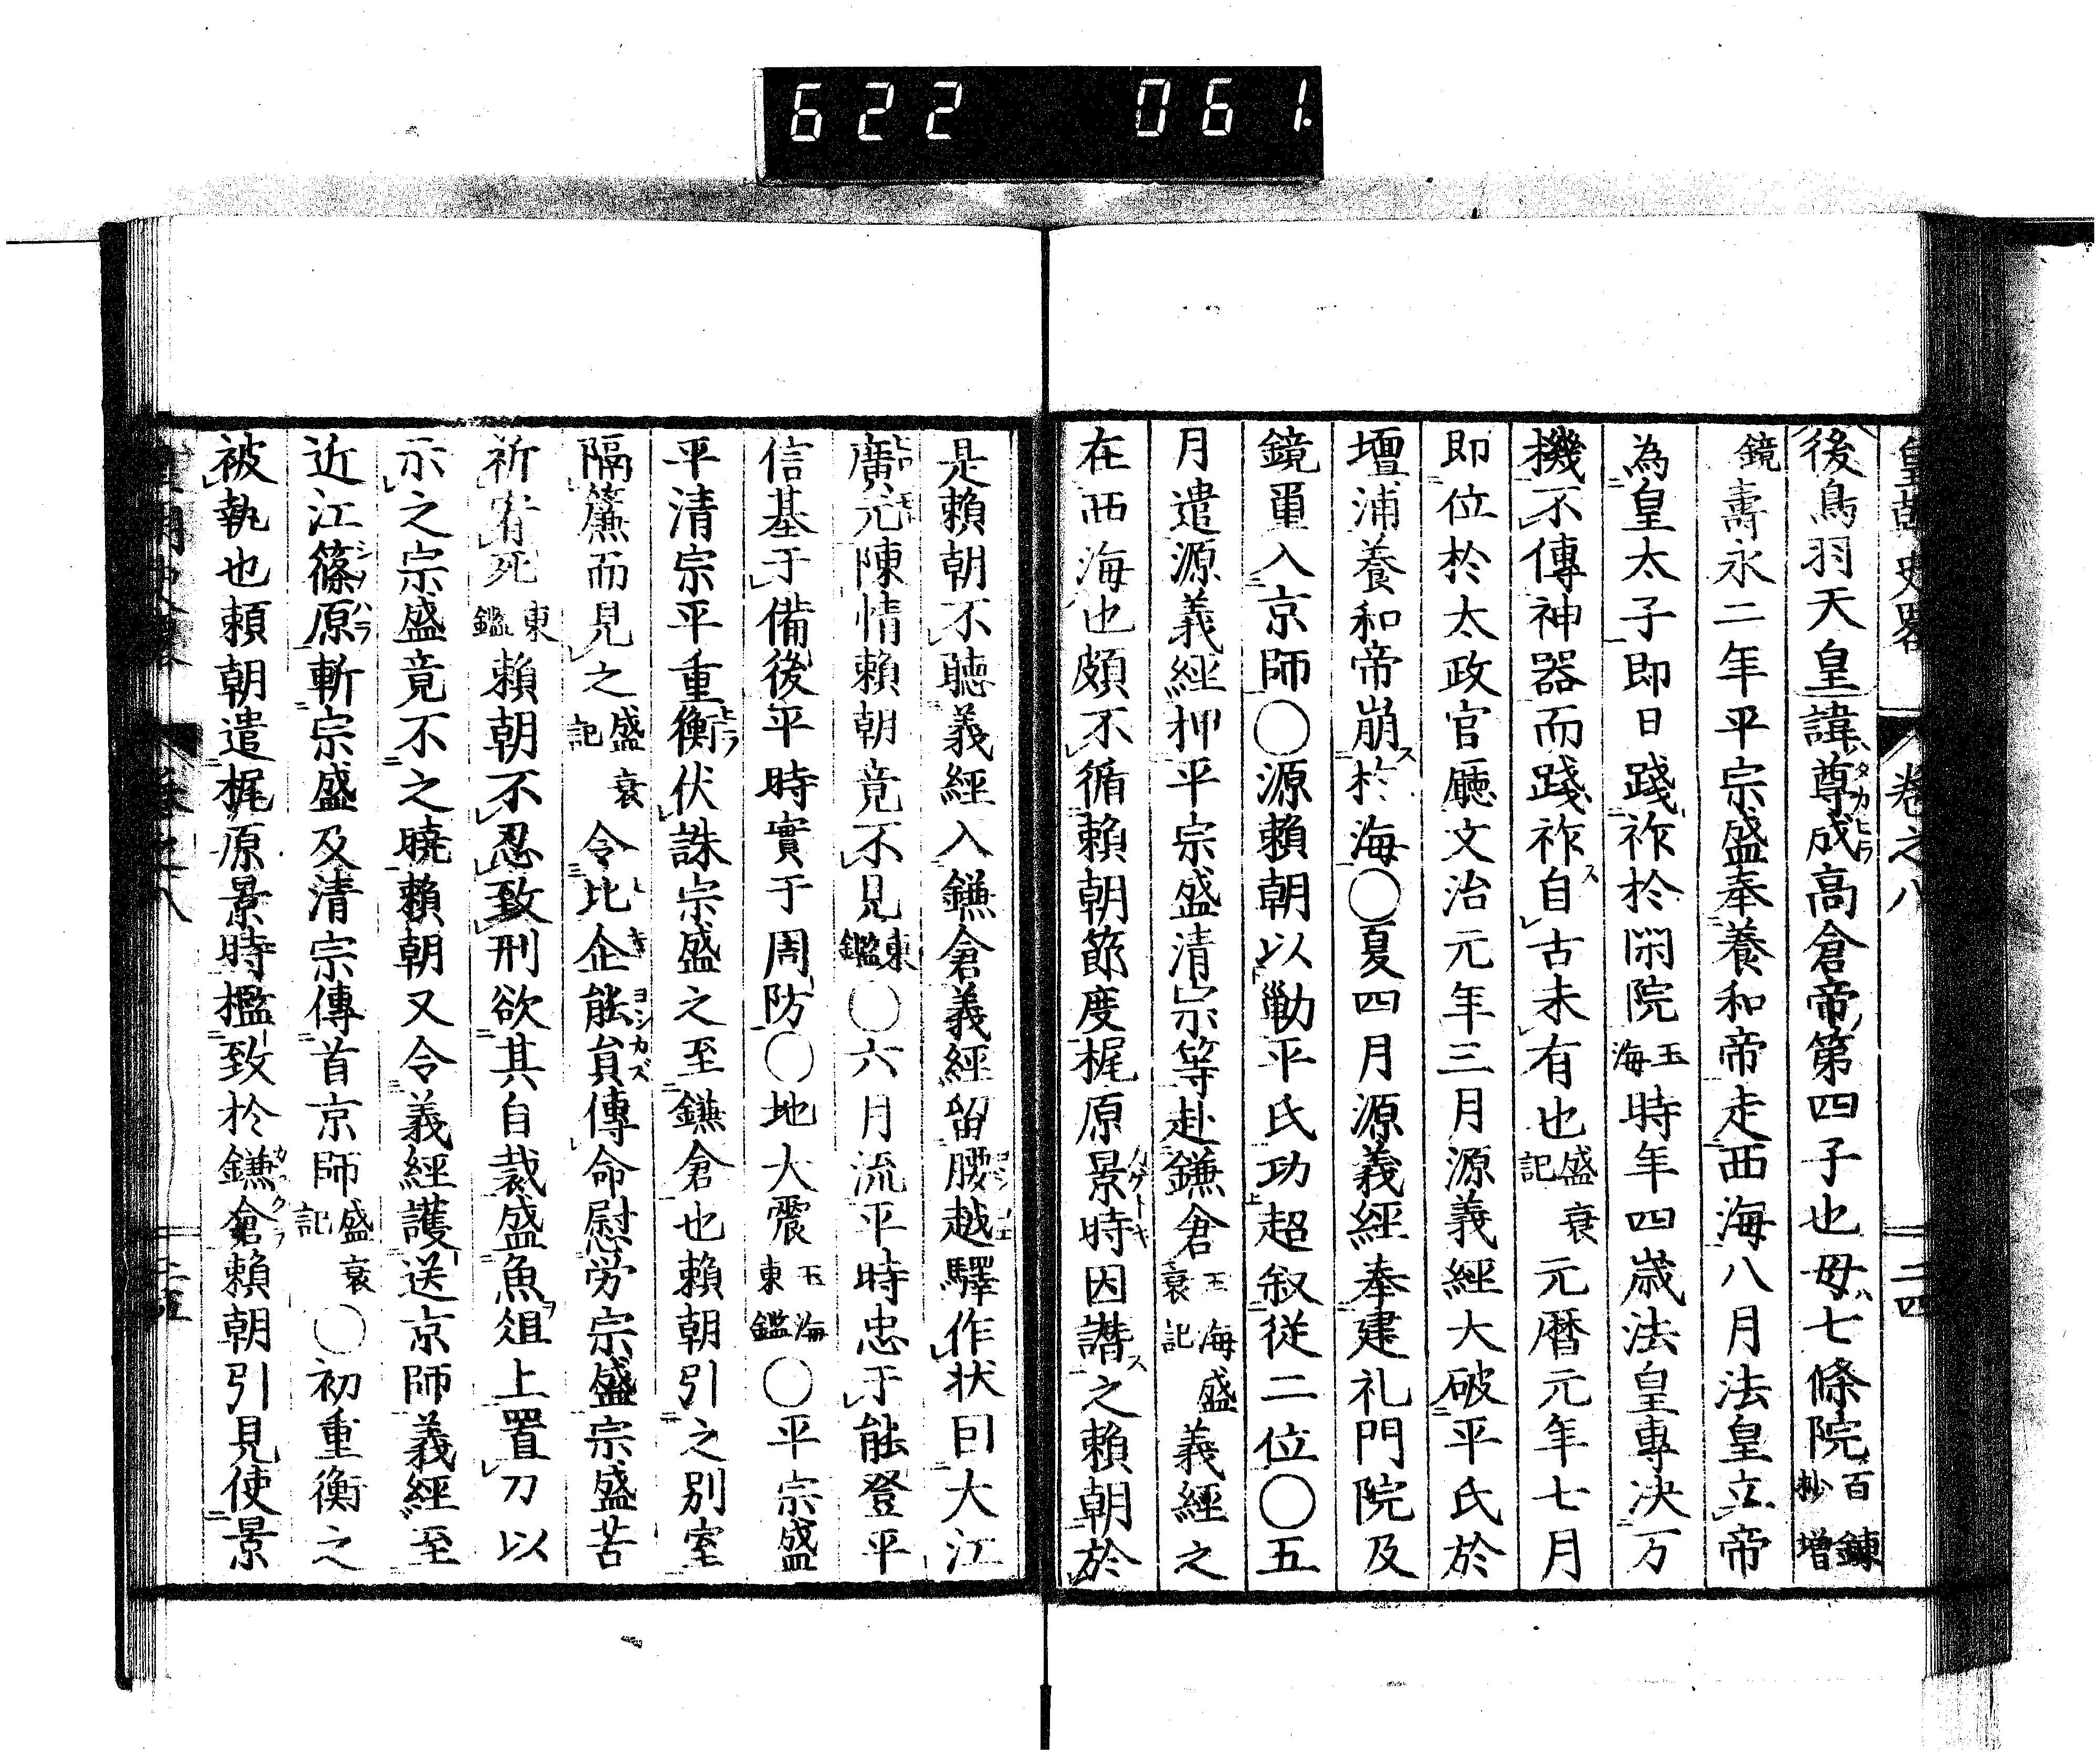 622 061.
皇朝史畧 卷之八 二四
後鳥羽天皇諱尊成高倉帝第四子也母七條院百鍊抄增
鏡壽永二年平宗盛奉養和帝走西海八月法皇立帝
為皇太子即日踐祚於閑院玉海時年四歳法皇專决万
機不傳神器而踐祚自古未有也盛衰記元曆元年七月
即位於太政官廳文治元年三月源義經大破平氏於
壇浦養和帝崩於海〇夏四月源義經奉建礼門院及
鏡重入京師〇源頼朝以勦平氏功超叙從二位〇五
月遣源義經押平宗盛清宗等赴鎌倉玉海盛衰記義經之
在西海也頗不循頼朝節度梶原景時因譖之頼朝於
是頼朝不聴義經入鎌倉義經留腰越驛作状曰大江
廣元陳情頼朝竟不見東鑑〇六月流平時忠于能登平
信基于備後平時實于周防〇地大震玉海東鑑〇平宗盛
平清宗平重衡伏誅宗盛之至鎌倉也頼朝引之別室
隔簾而見之盛衰記令比企能員傳命慰労宗盛宗盛苦
祈宥死東鑑頼朝不忍致刑欲其自裁盛魚俎上置刀以
示之宗盛竟不之曉頼朝又令義經護送京師義經至
近江篠原斬宗盛及清宗傳首京師盛衰記〇初重衡之
被執也頼朝遣梶原景時檻致於鎌倉頼朝引見使景